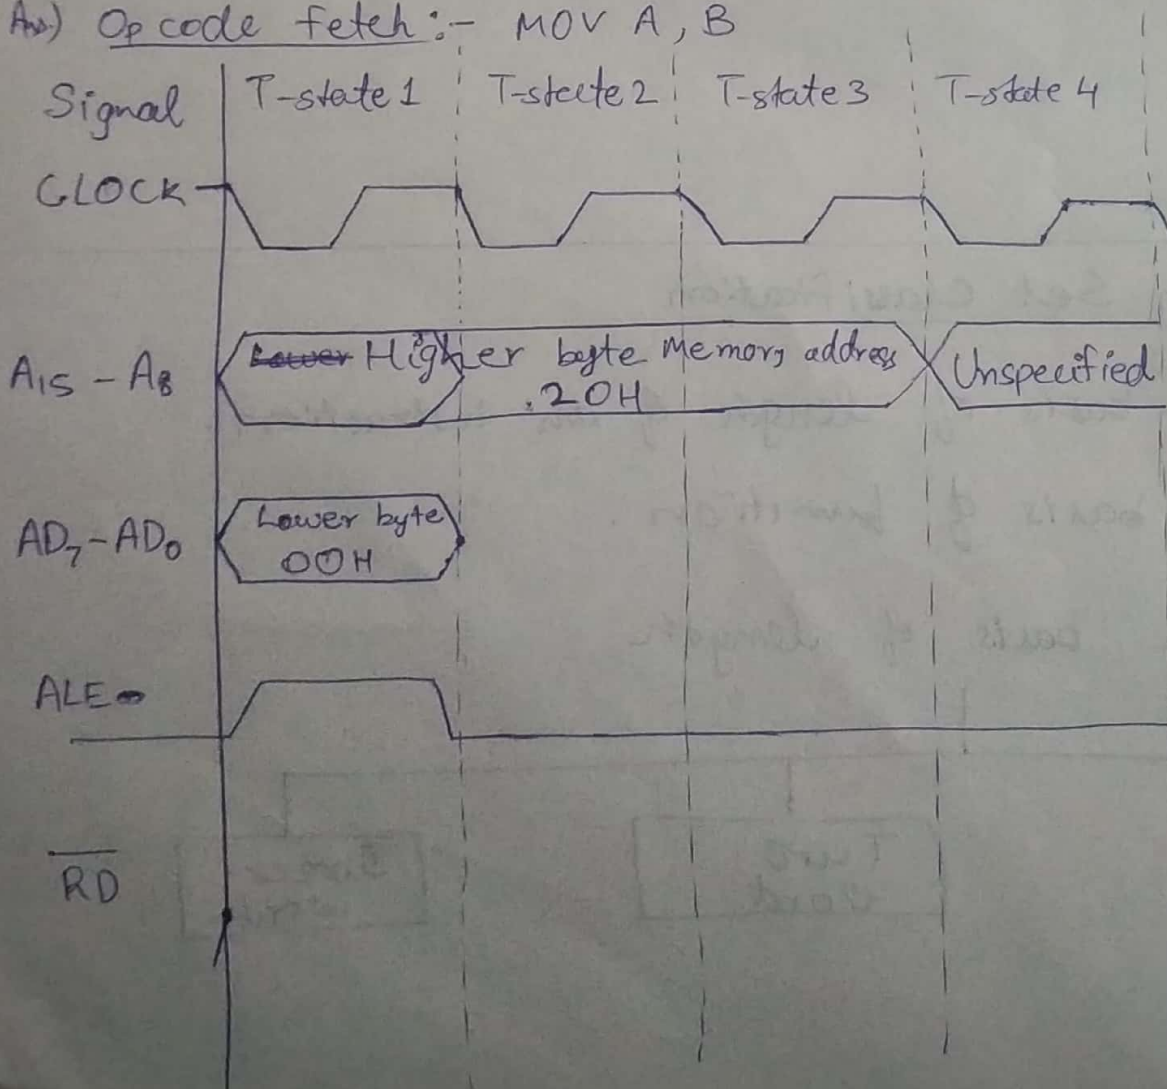 Ans.) Op code fetch :- MOV A, B
Signal T-state 1 T-state 2 T-state 3 T-state 4
CLOCK
A15 - A8 Lower Higher byte Memory address Unspecified
.20H
AD7 - AD0 Lower byte
00H
ALE
RD